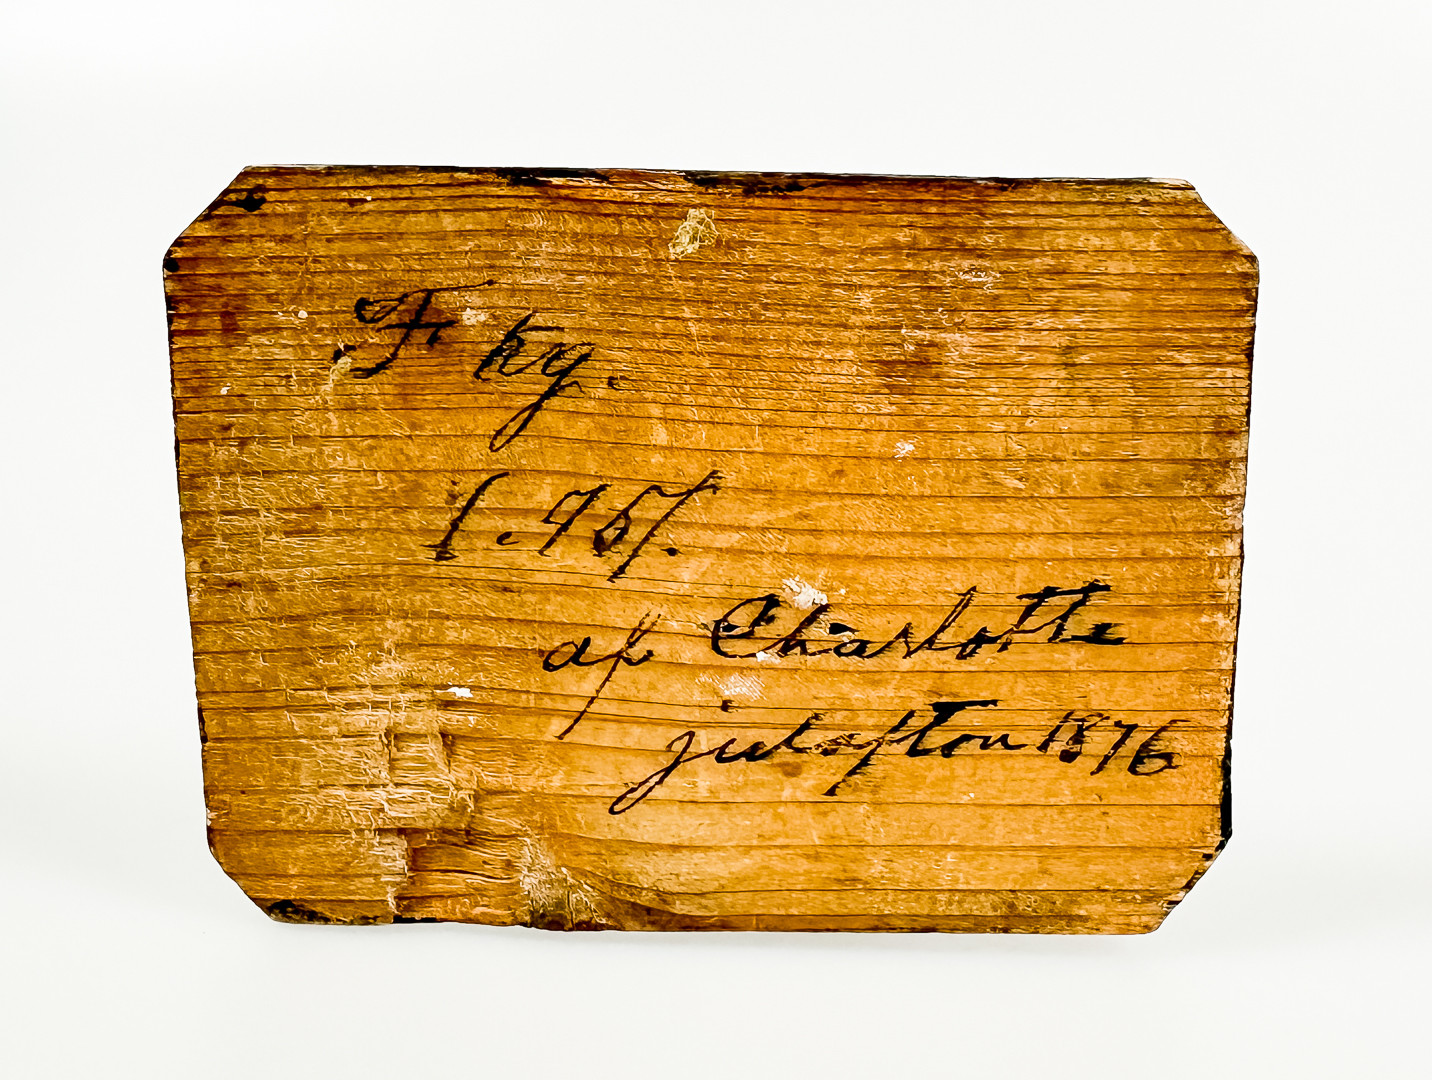 F. kg.
af Charlotte
julafton 1876